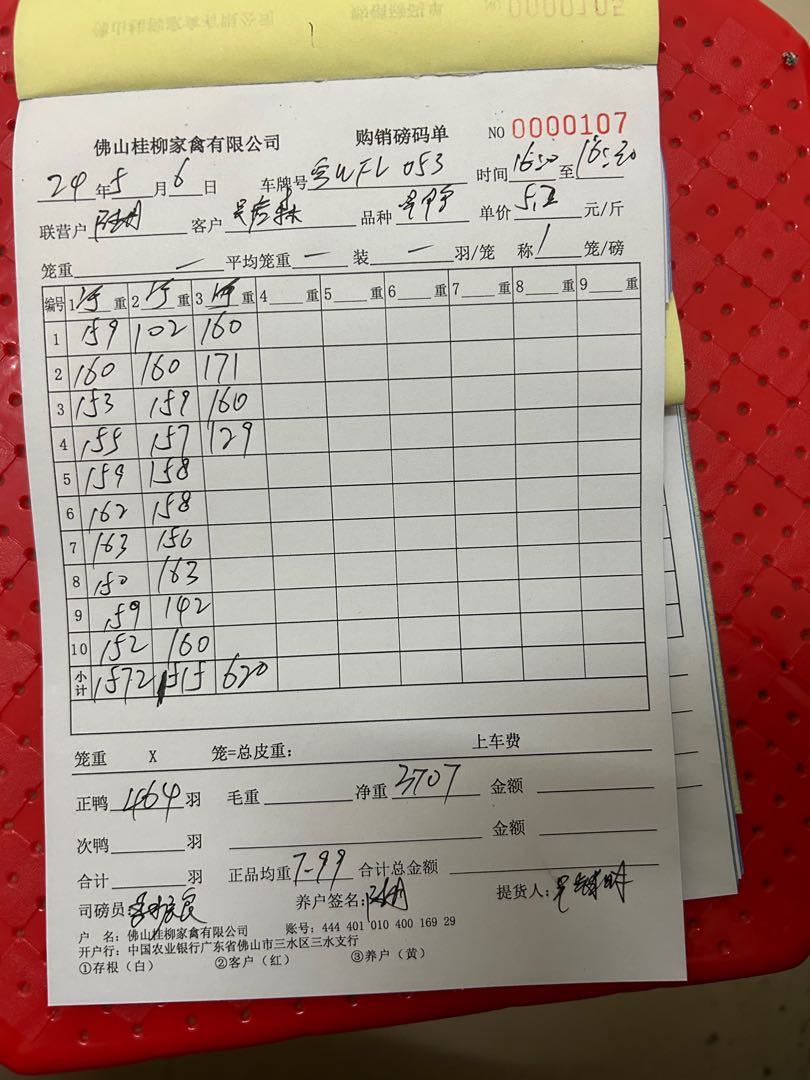 佛山桂柳家禽有限公司 购销磅码单 NO 0000107
24 年 5 月 6 日 车牌号 WFL 053 时间 1650 至
联营户 客户 品种 单价 5.2 元/斤
笼重 一 平均笼重 一 装 一 羽/笼 称 1 笼/磅
编号 1 净 重 2 净 重 3 净 重 4 重 5 重 6 重 7 重 8 重 9 重
1 159 102 160
2 160 160 171
3 153 159 160
4 155 157 129
5 159 158
6 162 158
7 163 156
8 150 163
9 159 142
10 152 160
小计 1572 1515 620
笼重 X 笼=总皮重: 上车费
正鸭 464 羽 毛重 净重 3707 金额
次鸭 羽 金额
合计 羽 正品均重 7-99 合计总金额
司磅员 养户签名: 提货人:
户 名: 佛山桂柳家禽有限公司 账号: 444 401 010 400 169 29
开户行: 中国农业银行广东省佛山市三水区三水支行
①存根(白) ②客户(红) ③养户(黄)